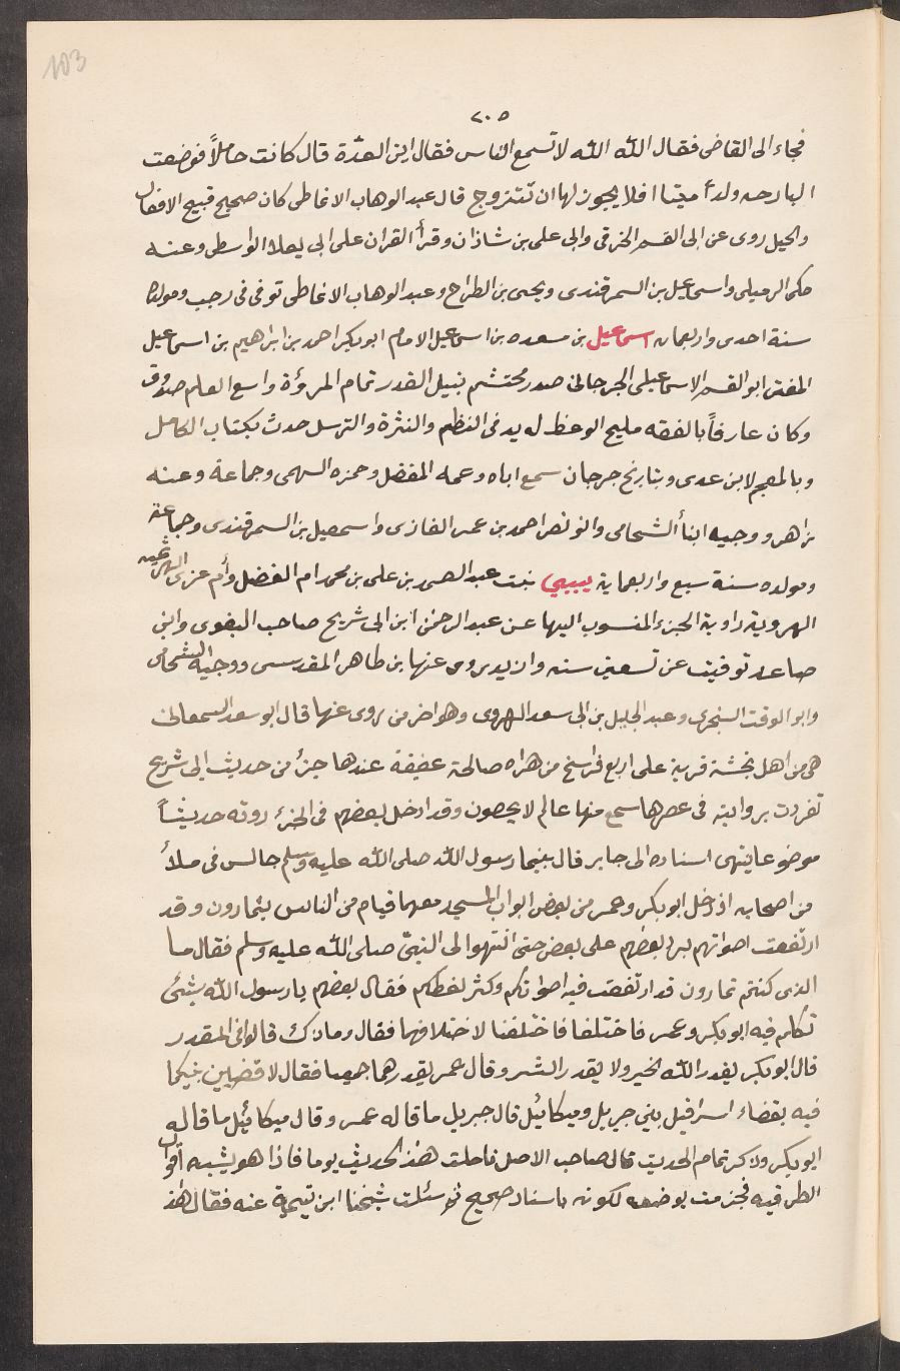 103
٢٠٥
فجاء الى القاضى فقال الله الله لا تسمع الناس فقال اين العدة قال كانت حاملاً فوضعت
البارحه ولداً ميتا افلا يجوز لها ان تتزوج قال عبد الوهاب الانماطى كان صحيح قبيح الافعال
والحيل روى عن ابى القسم الخرقى وابى على بن شاذان وقرأ القران على ابى يعلا الواسطى وعنه
مكى الرميلى واسماعيل بن السمرقندى ويحيى بن الطراح وعبد الوهاب الانماطى توفى فى رجب ومولده
سنة احدى واربعمايه اسماعيل بن مسعده بن اسماعيل الامام ابو بكر احمد بن ابراهيم بن اسماعيل
المفتى ابو القسم الاسماعيلى الجرجانى صدر محتشم نبيل القدر تمام المروءة واسع العلم صدوق
وكان عارفاً بالفقه مليح الوعظ له يد فى النظم والنثرة والترسل حدث بكتاب الكامل
وبالمعجم لابن عدى وبتاريخ جرجان سمع اباه وعمه المفضل وحمزه السهمى وجماعة وعنه
زاهر ووجيه ابنا الشحامى وابو نصر احمد بن عمر الغازى واسمعيل بن السمرقندى وجماعة
ومولده سنة سبع واربعماية بيبي بنت عبد الصمد بن على بن محمد ام الفضل وأم عزى الهرثميه
الهروية راوية الجزء المنسوب اليها عن عبد الرحمن ابن ابى شريح صاحب البغوى وابن
صاعد توفيت عن تسعين سنه وازيد روى عنها بن طاهر المقدسى ووجيه الشحامى
وابو الوقت السنجرى وعبد الجليل بن ابى سعد الهروى وهو اخر من يروى عنها قال ابو سعد السمعانى
هى من اهل بخشة قرية على اربع فراسخ من هراه صالحة عفيفة عندها جزء من حديث ابى شريح
تفردت بروايته فى عصرها سمع منها عالم لا يحصون وقد ادخل بعضهم فى الجزء روته حديثاً
موضوعا ينتهى اسناده الى جابر قال بينما رسول الله صلى الله عليه وسلم جالس فى ملأ
من اصحابه اذ دخل ابو بكر وعمر من بعض ابواب المسجد معهما قيام من الناس يتمارون وقد
ارتفعت اصواتهم يرد بعضهم على بعض حتى انتهوا الى النبى صلى الله عليه وسلم فقال ما
الذى كنتم تمارون قد ارتفعت فيه اصواتكم وكثر لغطكم فقال بعضهم يا رسول الله بشئ
تكلم فيه ابو بكر وعمر فاختلفا فاختلفنا لاختلافهما فقال وما ذك قالوا فى القدر
قال ابو بكر يقدر الله الخير ولا يقدر الشر وقال عمر يقدرهما جميعا فقال لاقضين بينكما
فيه بقضاء اسرافيل بين جبريل وميكائيل قال جبريل ما قاله عمر وقال ميكائيل ما قاله
ابو بكر وذكر تمام الحديث قال صاحب الاصل تاملت هذ الحديث يوما فاذا هو يشبه اقوال
الطرقيه فجزمت بوضعه لكونه باسناد صحيح ثم سئلت شيخنا ابن تيمية عنه فقال هذ